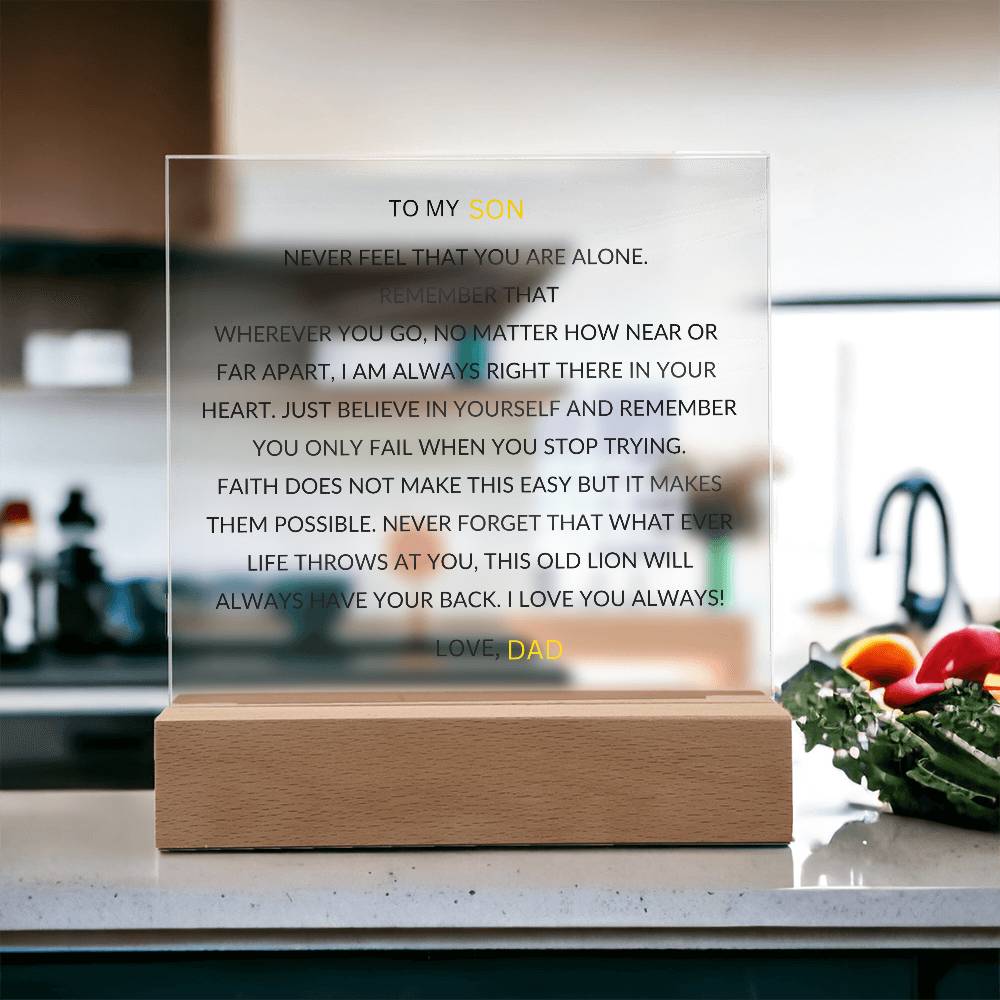 TO MY SON
NEVER FEEL THAT YOU ARE ALONE.
REMEMBER THAT
WHEREVER YOU GO, NO MATTER HOW NEAR OR
FAR APART, I AM ALWAYS RIGHT THERE IN YOUR
HEART. JUST BELIEVE IN YOURSELF AND REMEMBER
YOU ONLY FAIL WHEN YOU STOP TRYING.
FAITH DOES NOT MAKE THIS EASY BUT IT MAKES
THEM POSSIBLE. NEVER FORGET THAT WHAT EVER
LIFE THROWS AT YOU, THIS OLD LION WILL
ALWAYS HAVE YOUR BACK. I LOVE YOU ALWAYS!
LOVE, DAD